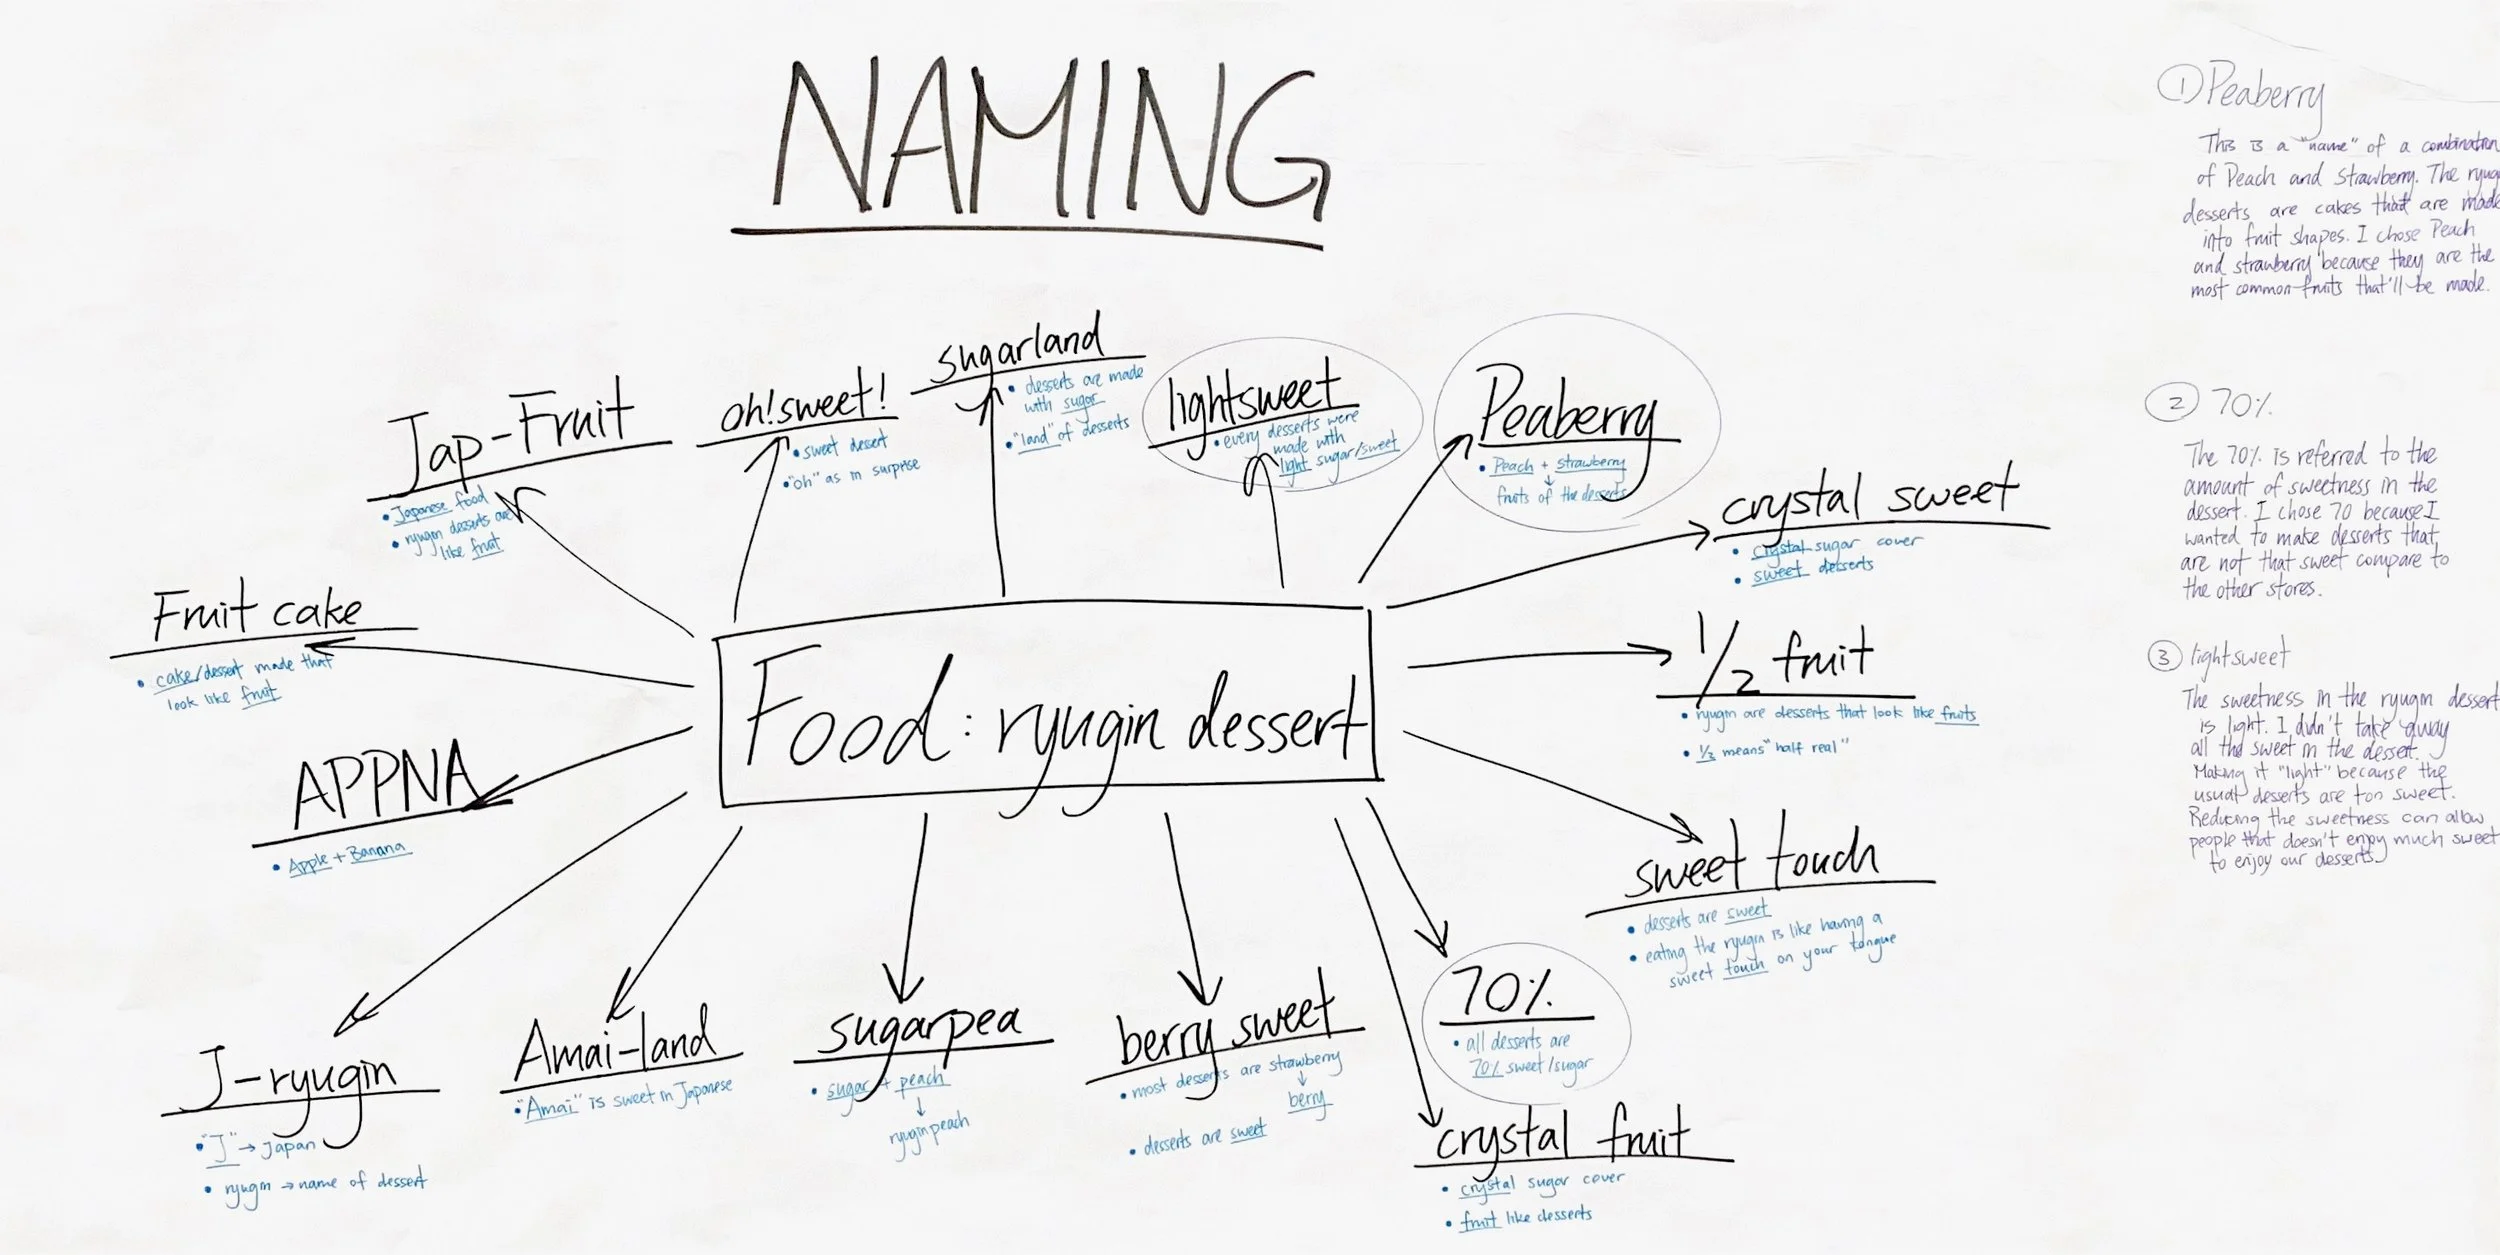 NAMING
Jap-Fruit
• Japanese food
• ryugin desserts are
like fruit
oh!sweet!
• sweet dessert
• "oh" as in surprise
sugarland
• desserts are made
with sugar
• "land" of desserts
lightsweet
• every desserts were
made with
light sugar/sweet
Peaberry
• Peach + strawberry
↓
fruits of the desserts
crystal sweet
• crystal sugar cover
• sweet desserts
Fruit cake
• cake/dessert made that
look like fruit
Food: ryugin dessert
1/2 fruit
• ryugin are desserts that look like fruits
• 1/2 means "half real"
APPNA
• Apple + Banana
sweet touch
• desserts are sweet
• eating the ryugin is like having a
sweet touch on your tongue
J-ryugin
• "J" → Japan
• ryugin → name of dessert
Amai-land
• "Amai" is sweet in Japanese
sugarpea
• sugar + peach
↓
ryugin peach
berry sweet
• most desserts are strawberry
↓
berry
• desserts are sweet
70%
• all desserts are
70% sweet/sugar
crystal fruit
• crystal sugar cover
• fruit like desserts
① Peaberry
This is a "name" of a combination
of Peach and strawberry. The ryug
desserts are cakes that are made
into fruit shapes. I chose Peach
and strawberry because they are the
most common fruits that'll be made.
② 70%
The 70% is referred to the
amount of sweetness in the
dessert. I chose 70 because I
wanted to make desserts that
are not that sweet compare to
the other stores.
③ lightsweet
The sweetness in the ryugin dessert
is light. I didn't take away
all the sweet in the dessert.
Making it "light" because the
usual desserts are too sweet.
Reducing the sweetness can allow
people that doesn't enjoy much sweet
to enjoy our desserts.